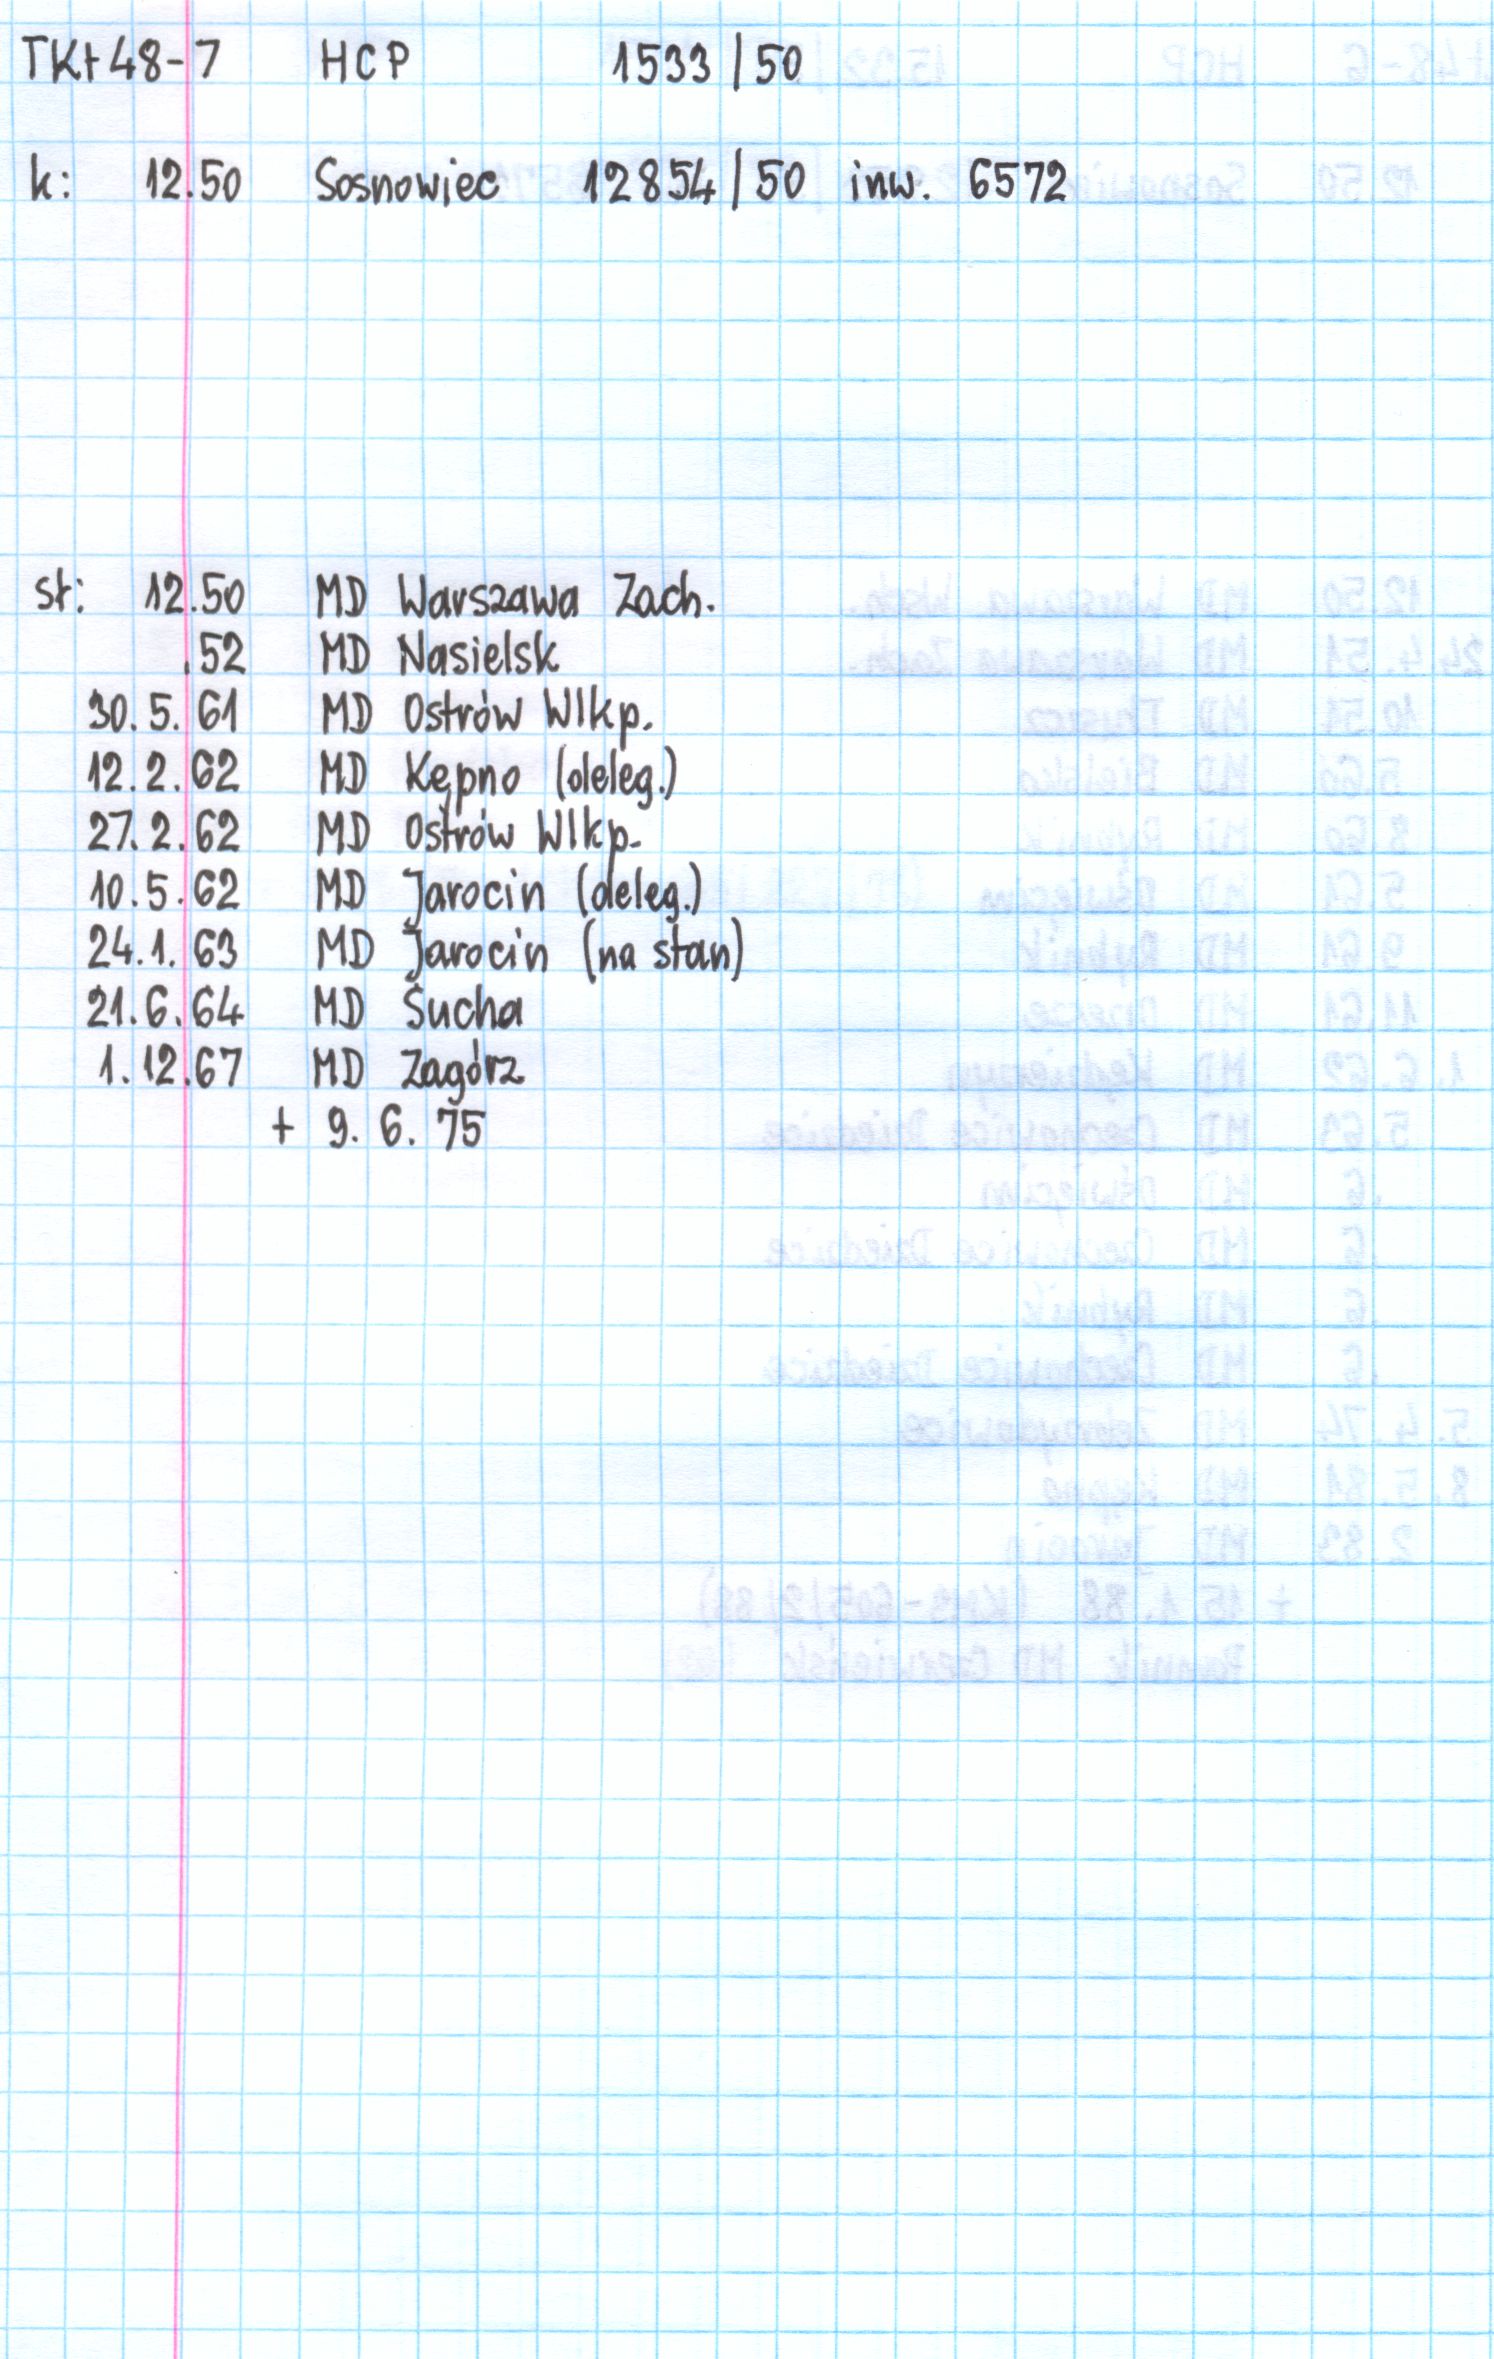 TKt48-7 HCP 1533/50
k: 12.50 Sosnowiec 12854/50 inw. 6572
st: 12.50 MD Warszawa Zach.
.52 MD Nasielsk
30.5.61 MD Ostrów Wlkp.
12.2.62 MD Kępno (deleg.)
27.2.62 MD Ostrów Wlkp.
10.5.62 MD Jarocin (deleg.)
24.1.63 MD Jarocin (na stan)
21.6.64 MD Sucha
1.12.67 MD Zagórz
+ 9.6.75